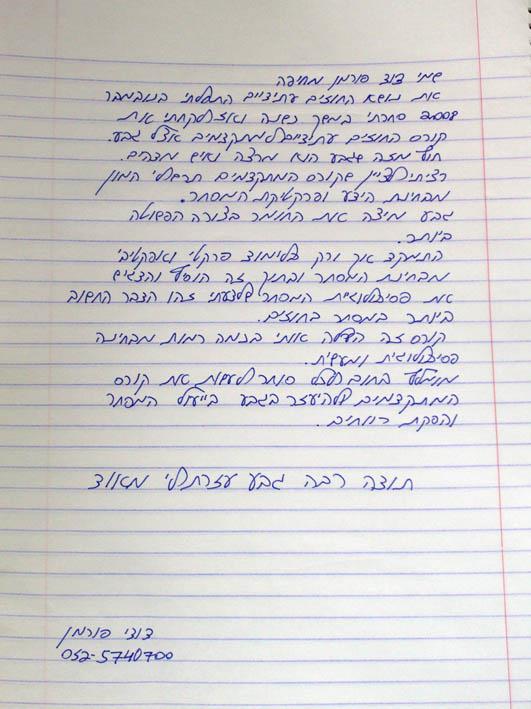 שמי דודי פורמן מחיפה
את נושא החוזים עתידיים התחלתי בנובמבר
2008 סחרתי במשך כשנה ואז לקחתי את
קורס החוזים עתידיים למתקדמים אצל גבע.
חוץ מזה שגבע הוא מרצה ואיש מדהים.
רציתי לציין שקורס המתקדמים תרם לי המון
מבחינת הידע ופרקטיקת המסחר.
גבע מיצה את החומר בצורה הפשוטה
ביותר.
התמקד אך ורק בלימוד פרקטי ואפקטיבי
מבחינת המסחר ובתוך זה הוסיף והדגיש
את פסיכולוגית המסחר שלדעתי זהו הדבר החשוב
ביותר במסחר בחוזים.
קורס זה העלה אותי בכמה רמות מבחינה
פסיכולוגית ומעשית.
מומלץ בחום לכל סוחר לעשות את קורס
המתקדמים ולהיעזר בגבע בייעול המסחר
והפקת רווחים.
תודה רבה גבע עזרת לי מאוד
דודי פורמן
052-5740700